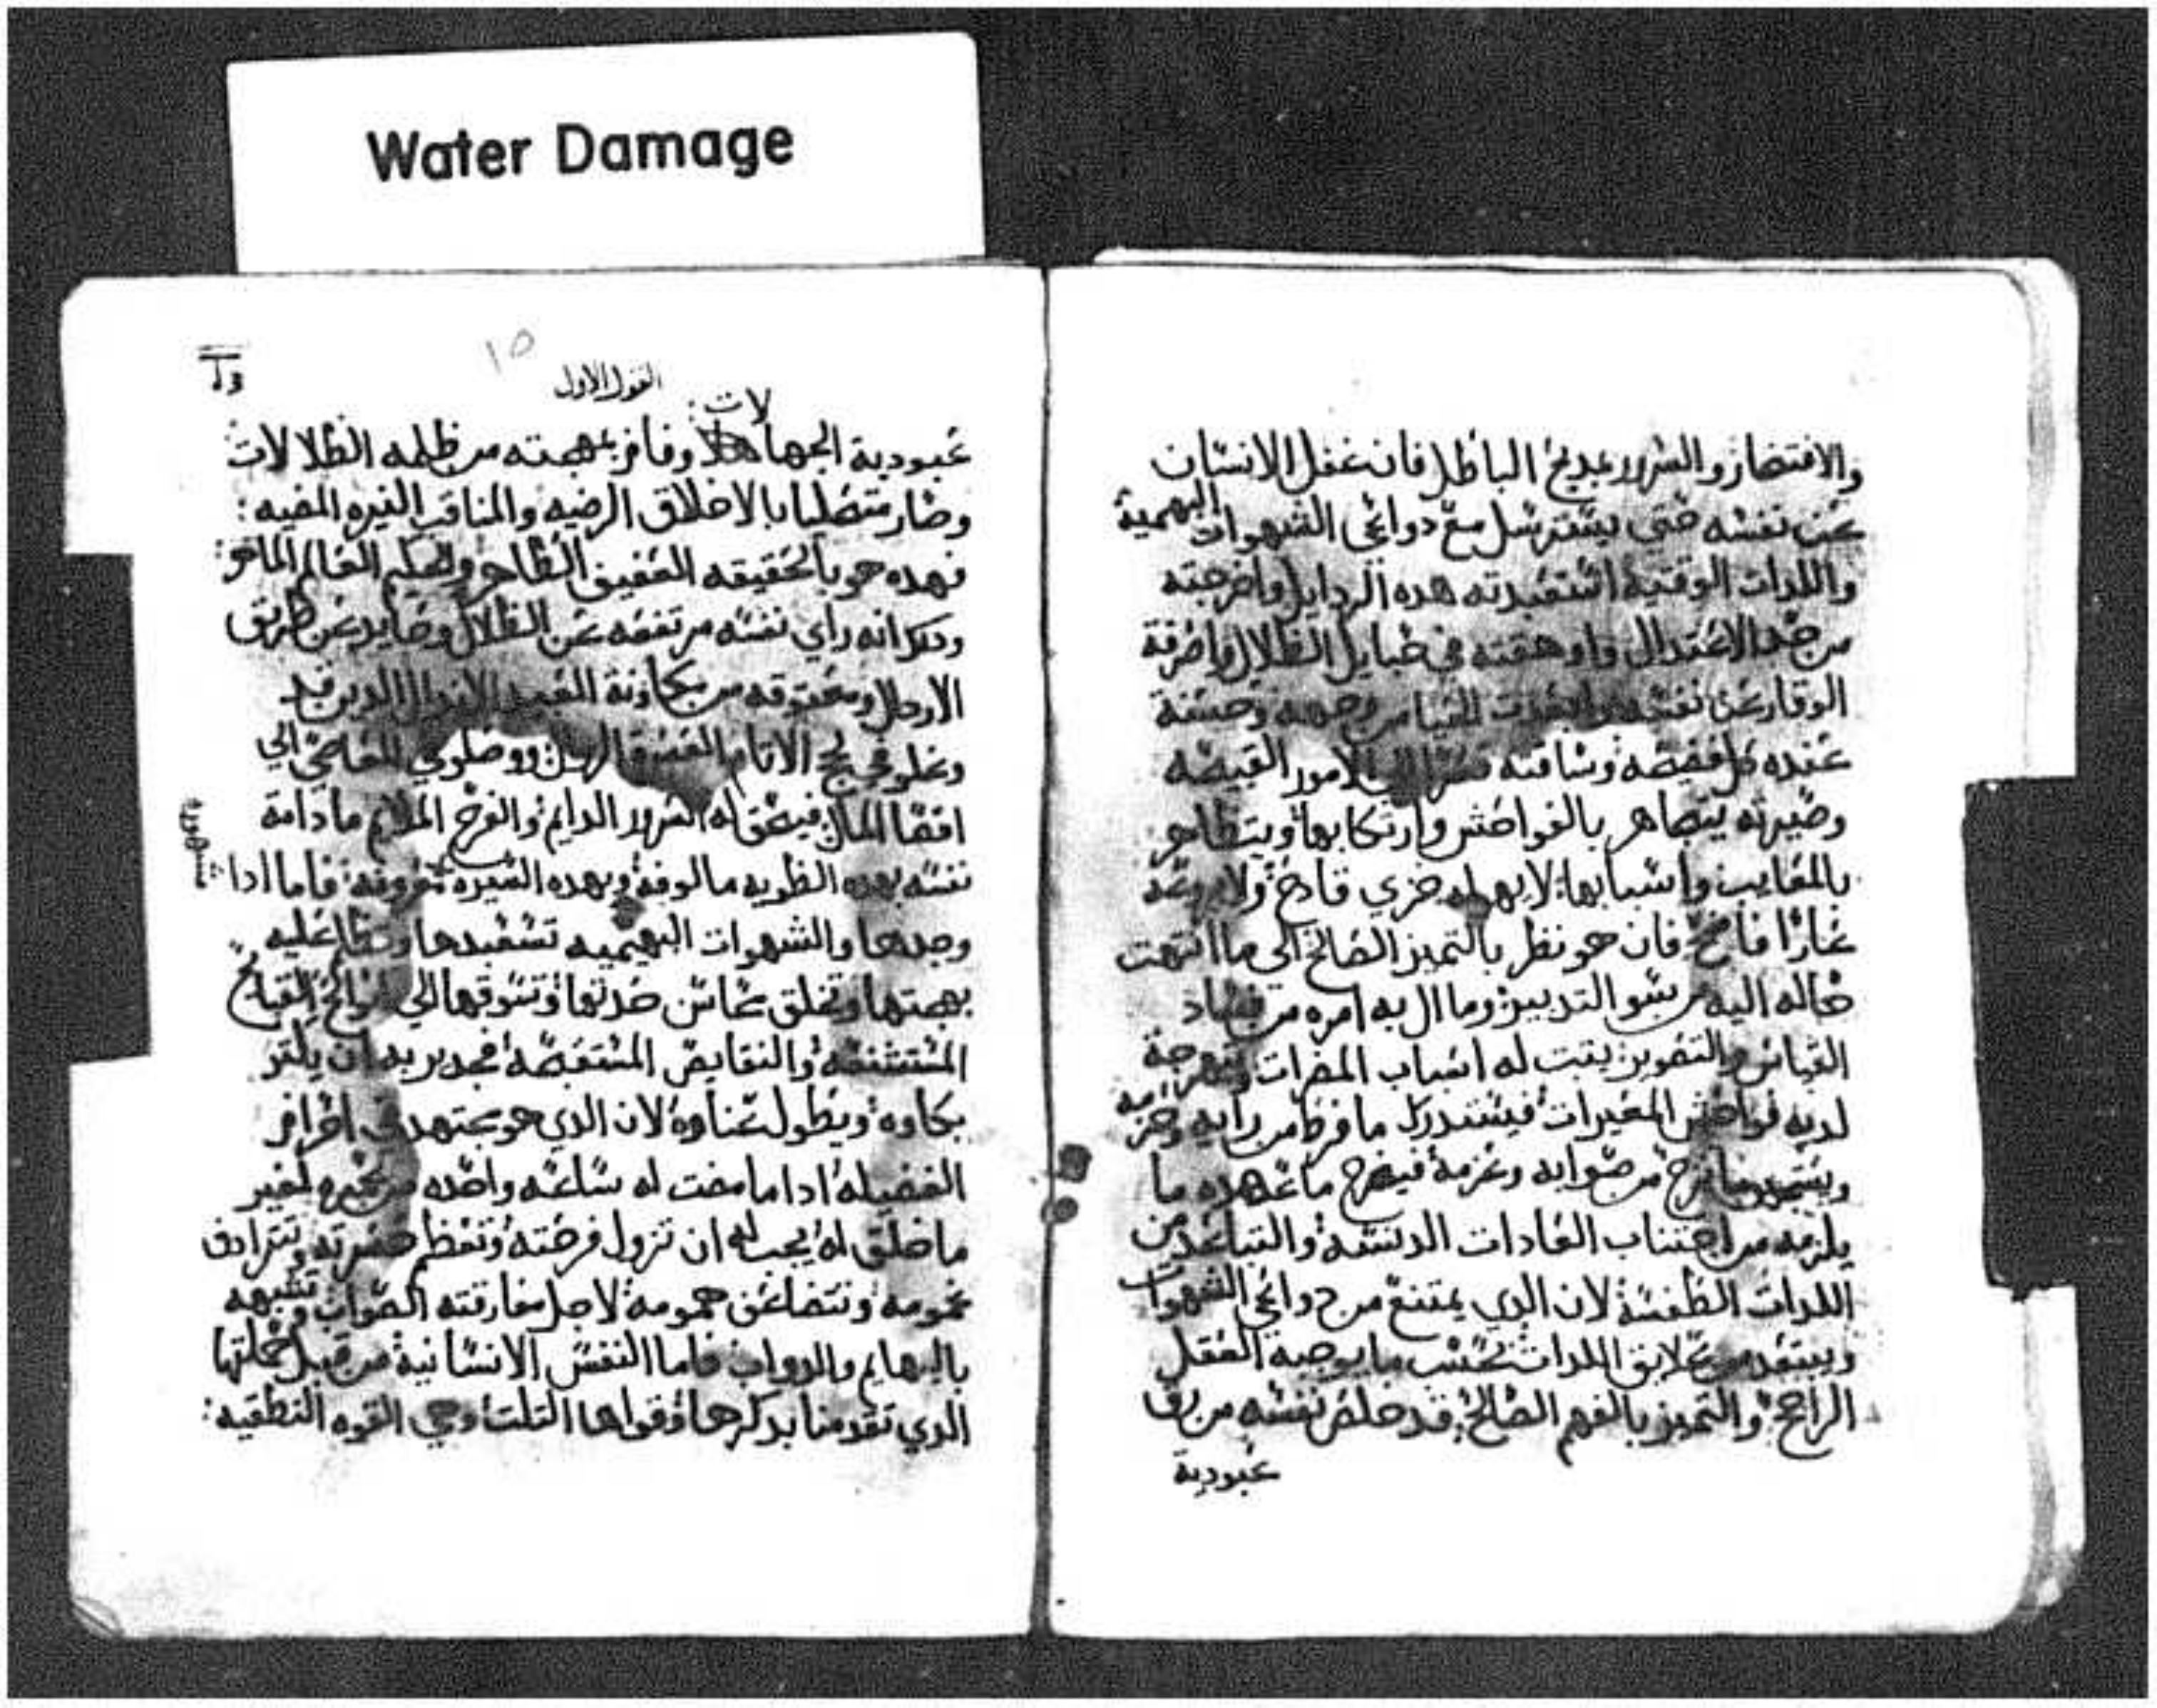 Water Damage
والافتخار والسرور بمديح الباطل فان غفل الانسان
عن نفسه حتى يسترسل مع دواعي الشهوات البهمية
واللدات الوقتية استعبدته هده الردايل واخرجته
من حد الاعتدال واوهقته في حبايل الظلال
الوقار عن نفسه وحسنة
عنده كل فضيحه وساقته الامور القبيحه
وصيرته يتجاهر بالفواحش وارتكابها ويتظاهر
بالمعايب واسبابها لا يهوله خزي فادح ولا
عارا فاضح فان هو نظر بالتميز الصالح الى ما انتهت
حاله اليه من سو التدبير وما ال به امره من فساد
القياس والتصوير يتبت له اسباب المضرات
لديه فواحش المغيرات فيستدرك ما فرط من رايه
صوابه وعزمه
يلزمه من اجتناب العادات الدنسه والتباعد من
اللدات الطفسة لان الدي يمتنع من دواعي الشهوات
ويبتعد من علايق اللدات بحسب ما يوجبه العقل
الراجح والتميز بالفهم الصالح قد خلص نفسه من رق
عبودية
١٥
القول الاول
عبودية الجهالات وفاز بمهجته من ظلمه الظلالات
وصار متحليا بالاخلاق الرضيه والمناقب النيره المضيه :
فهده هو بالحقيقه العفيف الطاهر والحكيم العالم الماهر :
ودلك انه راي نفسه مرتفعه عن الظلال وحايد عن طريق
الاردال العبيد الاندال الدين قد
وغلو في لجج الاتام
له السرور الدايم والفرح الملايم ما دامة
نفسه بهده الطويه مالوفه وبهده السيره معروفه فاما ادا
مشهورة
وجدها والشهوات البهيميه تستعبدها عليه
بهجتها وتخلق محاسن جدتها وتسوقها الي القبايح
المستشنعه والنقايص المستقبحه فجدير به ان يكتر
بكاوه ويطول عناوه لان الدي هو مجتهد في احراز
الفضيله ادا ما مضت له ساعه واحده لغير
ما خلق له يجب له ان تزول فرحته وتعظم حسرته وتترادف
غمومه وتتضاعف همومه لاجل مفارقته الصواب وتشبهه
بالبهايم والدواب فاما النفس الانسانية من قبل جملتها
الدي تقدمنا بدكرها وقواها التلت وهي القوه النطقيه :